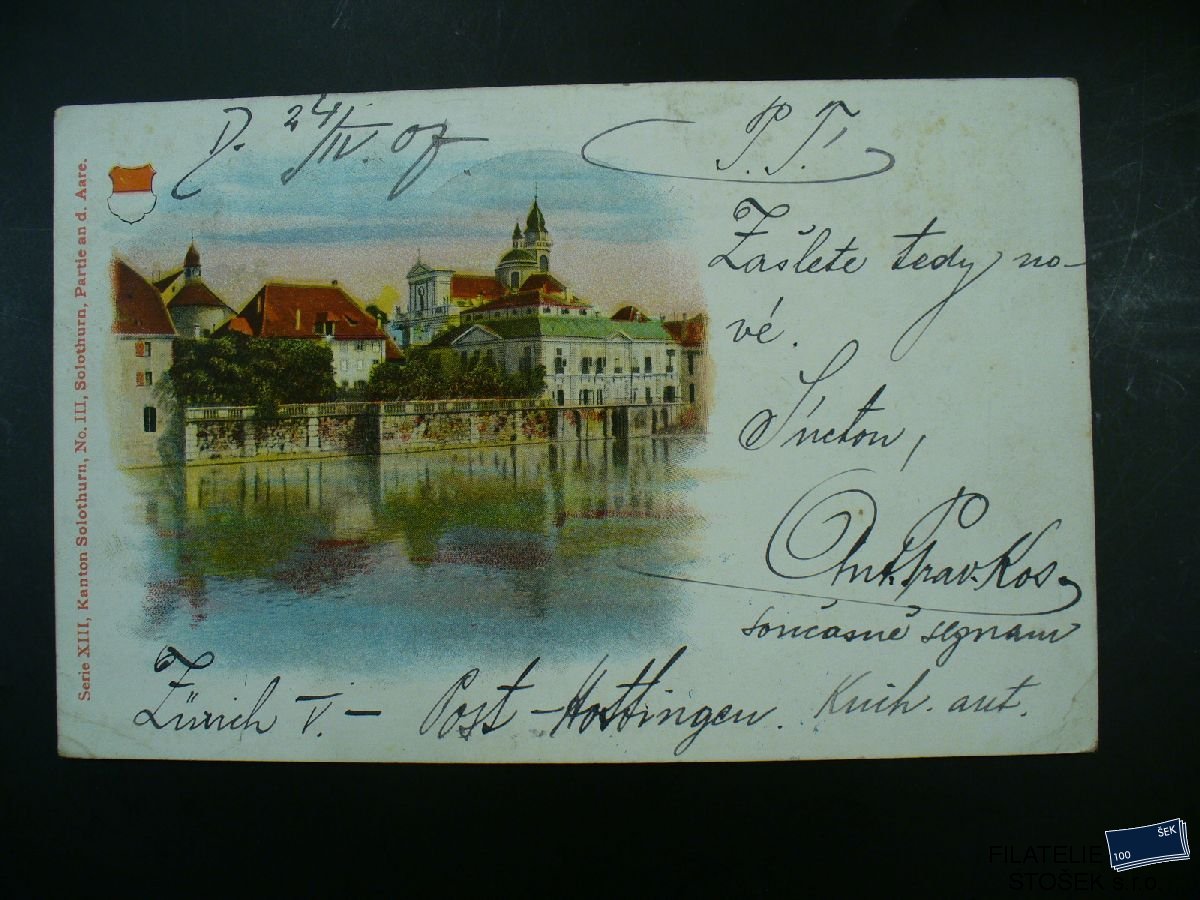 D. 24/IV. 07
P. T.
Zašlete tedy no-
vé.
S úctou,
Ant. Prav. Kos.
současně seznam
Knih. aut.
Zürich V. — Post-Hottingen.
Serie XIII, Kanton Solothurn, No. III, Solothurn, Partie an d. Aare.
100 ŠEK
FILATELIE
STOŠEK s.r.o.